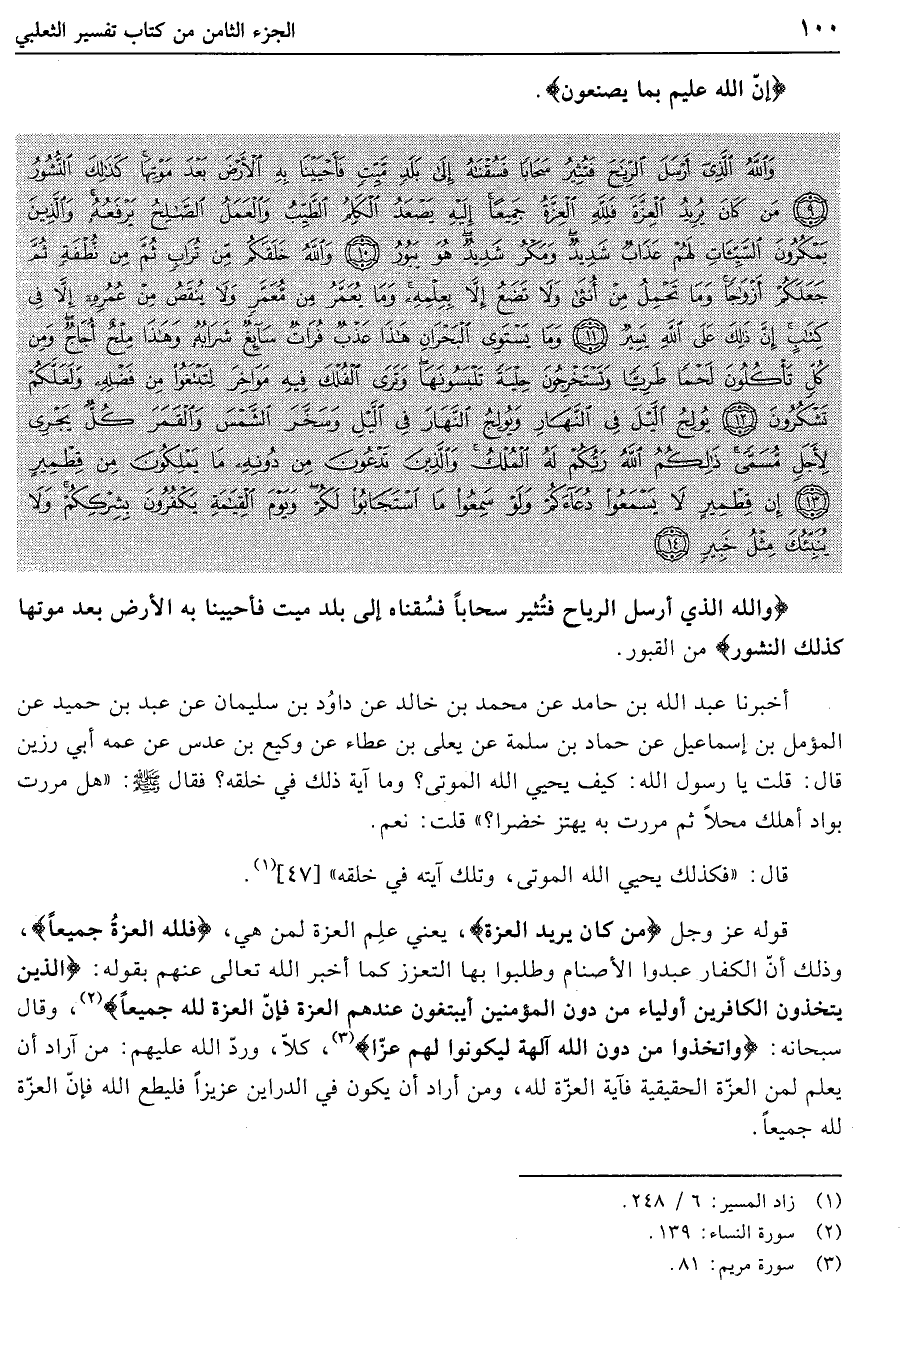 ١٠٠ الجزء الثامن من كتاب تفسير الثعلبي
﴿إنّ الله عليم بما يصنعون﴾.
وَٱللَّهُ ٱلَّذِىٓ أَرْسَلَ ٱلرِّيَـٰحَ فَتُثِيرُ سَحَابًا فَسُقْنَـٰهُ إِلَىٰ بَلَدٍ مَّيِّتٍ فَأَحْيَيْنَا بِهِ ٱلْأَرْضَ بَعْدَ مَوْتِهَا ۚ كَذَٰلِكَ ٱلنُّشُورُ
﴿٩﴾ مَن كَانَ يُرِيدُ ٱلْعِزَّةَ فَلِلَّهِ ٱلْعِزَّةُ جَمِيعًا ۚ إِلَيْهِ يَصْعَدُ ٱلْكَلِمُ ٱلطَّيِّبُ وَٱلْعَمَلُ ٱلصَّـٰلِحُ يَرْفَعُهُۥ ۚ وَٱلَّذِينَ
يَمْكُرُونَ ٱلسَّيِّـَٔاتِ لَهُمْ عَذَابٌ شَدِيدٌ ۖ وَمَكْرُ أُو۟لَـٰٓئِكَ هُوَ يَبُورُ ﴿١٠﴾ وَٱللَّهُ خَلَقَكُم مِّن تُرَابٍ ثُمَّ مِن نُّطْفَةٍ ثُمَّ
جَعَلَكُمْ أَزْوَٰجًا ۚ وَمَا تَحْمِلُ مِنْ أُنثَىٰ وَلَا تَضَعُ إِلَّا بِعِلْمِهِۦ ۚ وَمَا يُعَمَّرُ مِن مُّعَمَّرٍ وَلَا يُنقَصُ مِنْ عُمُرِهِۦٓ إِلَّا فِى
كِتَـٰبٍ ۚ إِنَّ ذَٰلِكَ عَلَى ٱللَّهِ يَسِيرٌ ﴿١١﴾ وَمَا يَسْتَوِى ٱلْبَحْرَانِ هَـٰذَا عَذْبٌ فُرَاتٌ سَآئِغٌ شَرَابُهُۥ وَهَـٰذَا مِلْحٌ أُجَاجٌ ۖ وَمِن
كُلٍّ تَأْكُلُونَ لَحْمًا طَرِيًّا وَتَسْتَخْرِجُونَ حِلْيَةً تَلْبَسُونَهَا ۖ وَتَرَى ٱلْفُلْكَ فِيهِ مَوَاخِرَ لِتَبْتَغُوا۟ مِن فَضْلِهِۦ وَلَعَلَّكُمْ
تَشْكُرُونَ ﴿١٢﴾ يُولِجُ ٱلَّيْلَ فِى ٱلنَّهَارِ وَيُولِجُ ٱلنَّهَارَ فِى ٱلَّيْلِ وَسَخَّرَ ٱلشَّمْسَ وَٱلْقَمَرَ كُلٌّ يَجْرِى
لِأَجَلٍ مُّسَمًّى ۚ ذَٰلِكُمُ ٱللَّهُ رَبُّكُمْ لَهُ ٱلْمُلْكُ ۚ وَٱلَّذِينَ تَدْعُونَ مِن دُونِهِۦ مَا يَمْلِكُونَ مِن قِطْمِيرٍ
﴿١٣﴾ إِن تَدْعُوهُمْ لَا يَسْمَعُوا۟ دُعَآءَكُمْ وَلَوْ سَمِعُوا۟ مَا ٱسْتَجَابُوا۟ لَكُمْ ۖ وَيَوْمَ ٱلْقِيَـٰمَةِ يَكْفُرُونَ بِشِرْكِكُمْ ۚ وَلَا
يُنَبِّئُكَ مِثْلُ خَبِيرٍ ﴿١٤﴾
﴿والله الذي أرسل الرياح فتُثير سحاباً فسُقناه إلى بلد ميت فأحيينا به الأرض بعد موتها
كذلك النشور﴾ من القبور.
أخبرنا عبد الله بن حامد عن محمد بن خالد عن داوُد بن سليمان عن عبد بن حميد عن
المؤمل بن إسماعيل عن حماد بن سلمة عن يعلى بن عطاء عن وكيع بن عدس عن عمه أبي رزين
قال: قلت يا رسول الله: كيف يحيي الله الموتى؟ وما آية ذلك في خلقه؟ فقال ﷺ: «هل مررت
بواد أهلك محلاً ثم مررت به يهتز خضرا؟» قلت: نعم.
قال: «فكذلك يحيي الله الموتى، وتلك آيته في خلقه» [٤٧](١).
قوله عز وجل ﴿من كان يريد العزة﴾، يعني علِم العزة لمن هي، ﴿فلله العزةُ جميعاً﴾،
وذلك أنّ الكفار عبدوا الأصنام وطلبوا بها التعزز كما أخبر الله تعالى عنهم بقوله: ﴿الذين
يتخذون الكافرين أولياء من دون المؤمنين أيبتغون عندهم العزة فإنّ العزة لله جميعاً﴾(٢)، وقال
سبحانه: ﴿واتخذوا من دون الله آلهة ليكونوا لهم عزّا﴾(٣)، كلاّ، وردّ الله عليهم: من آراد أن
يعلم لمن العزّة الحقيقية فآية العزّة لله، ومن أراد أن يكون في الدراين عزيزاً فليطع الله فإنّ العزّة
لله جميعاً.
(١) زاد المسير: ٦ / ٢٤٨.
(٢) سورة النساء: ١٣٩.
(٣) سورة مريم: ٨١.